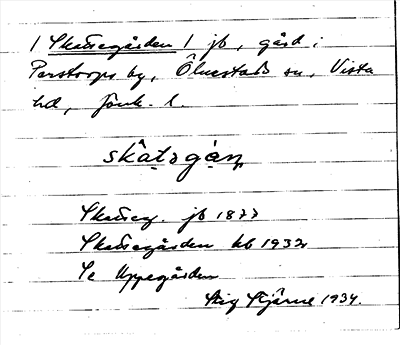 / Skattegården / jb, gård i
Perstorps by, Ölmestads sn, Vista
hd, Jönk. l.
skàtəgàɳ
Skatteg. jb 1877
Skattegården kb 1932
Se Uppegården
Stig Stjärne 1934.